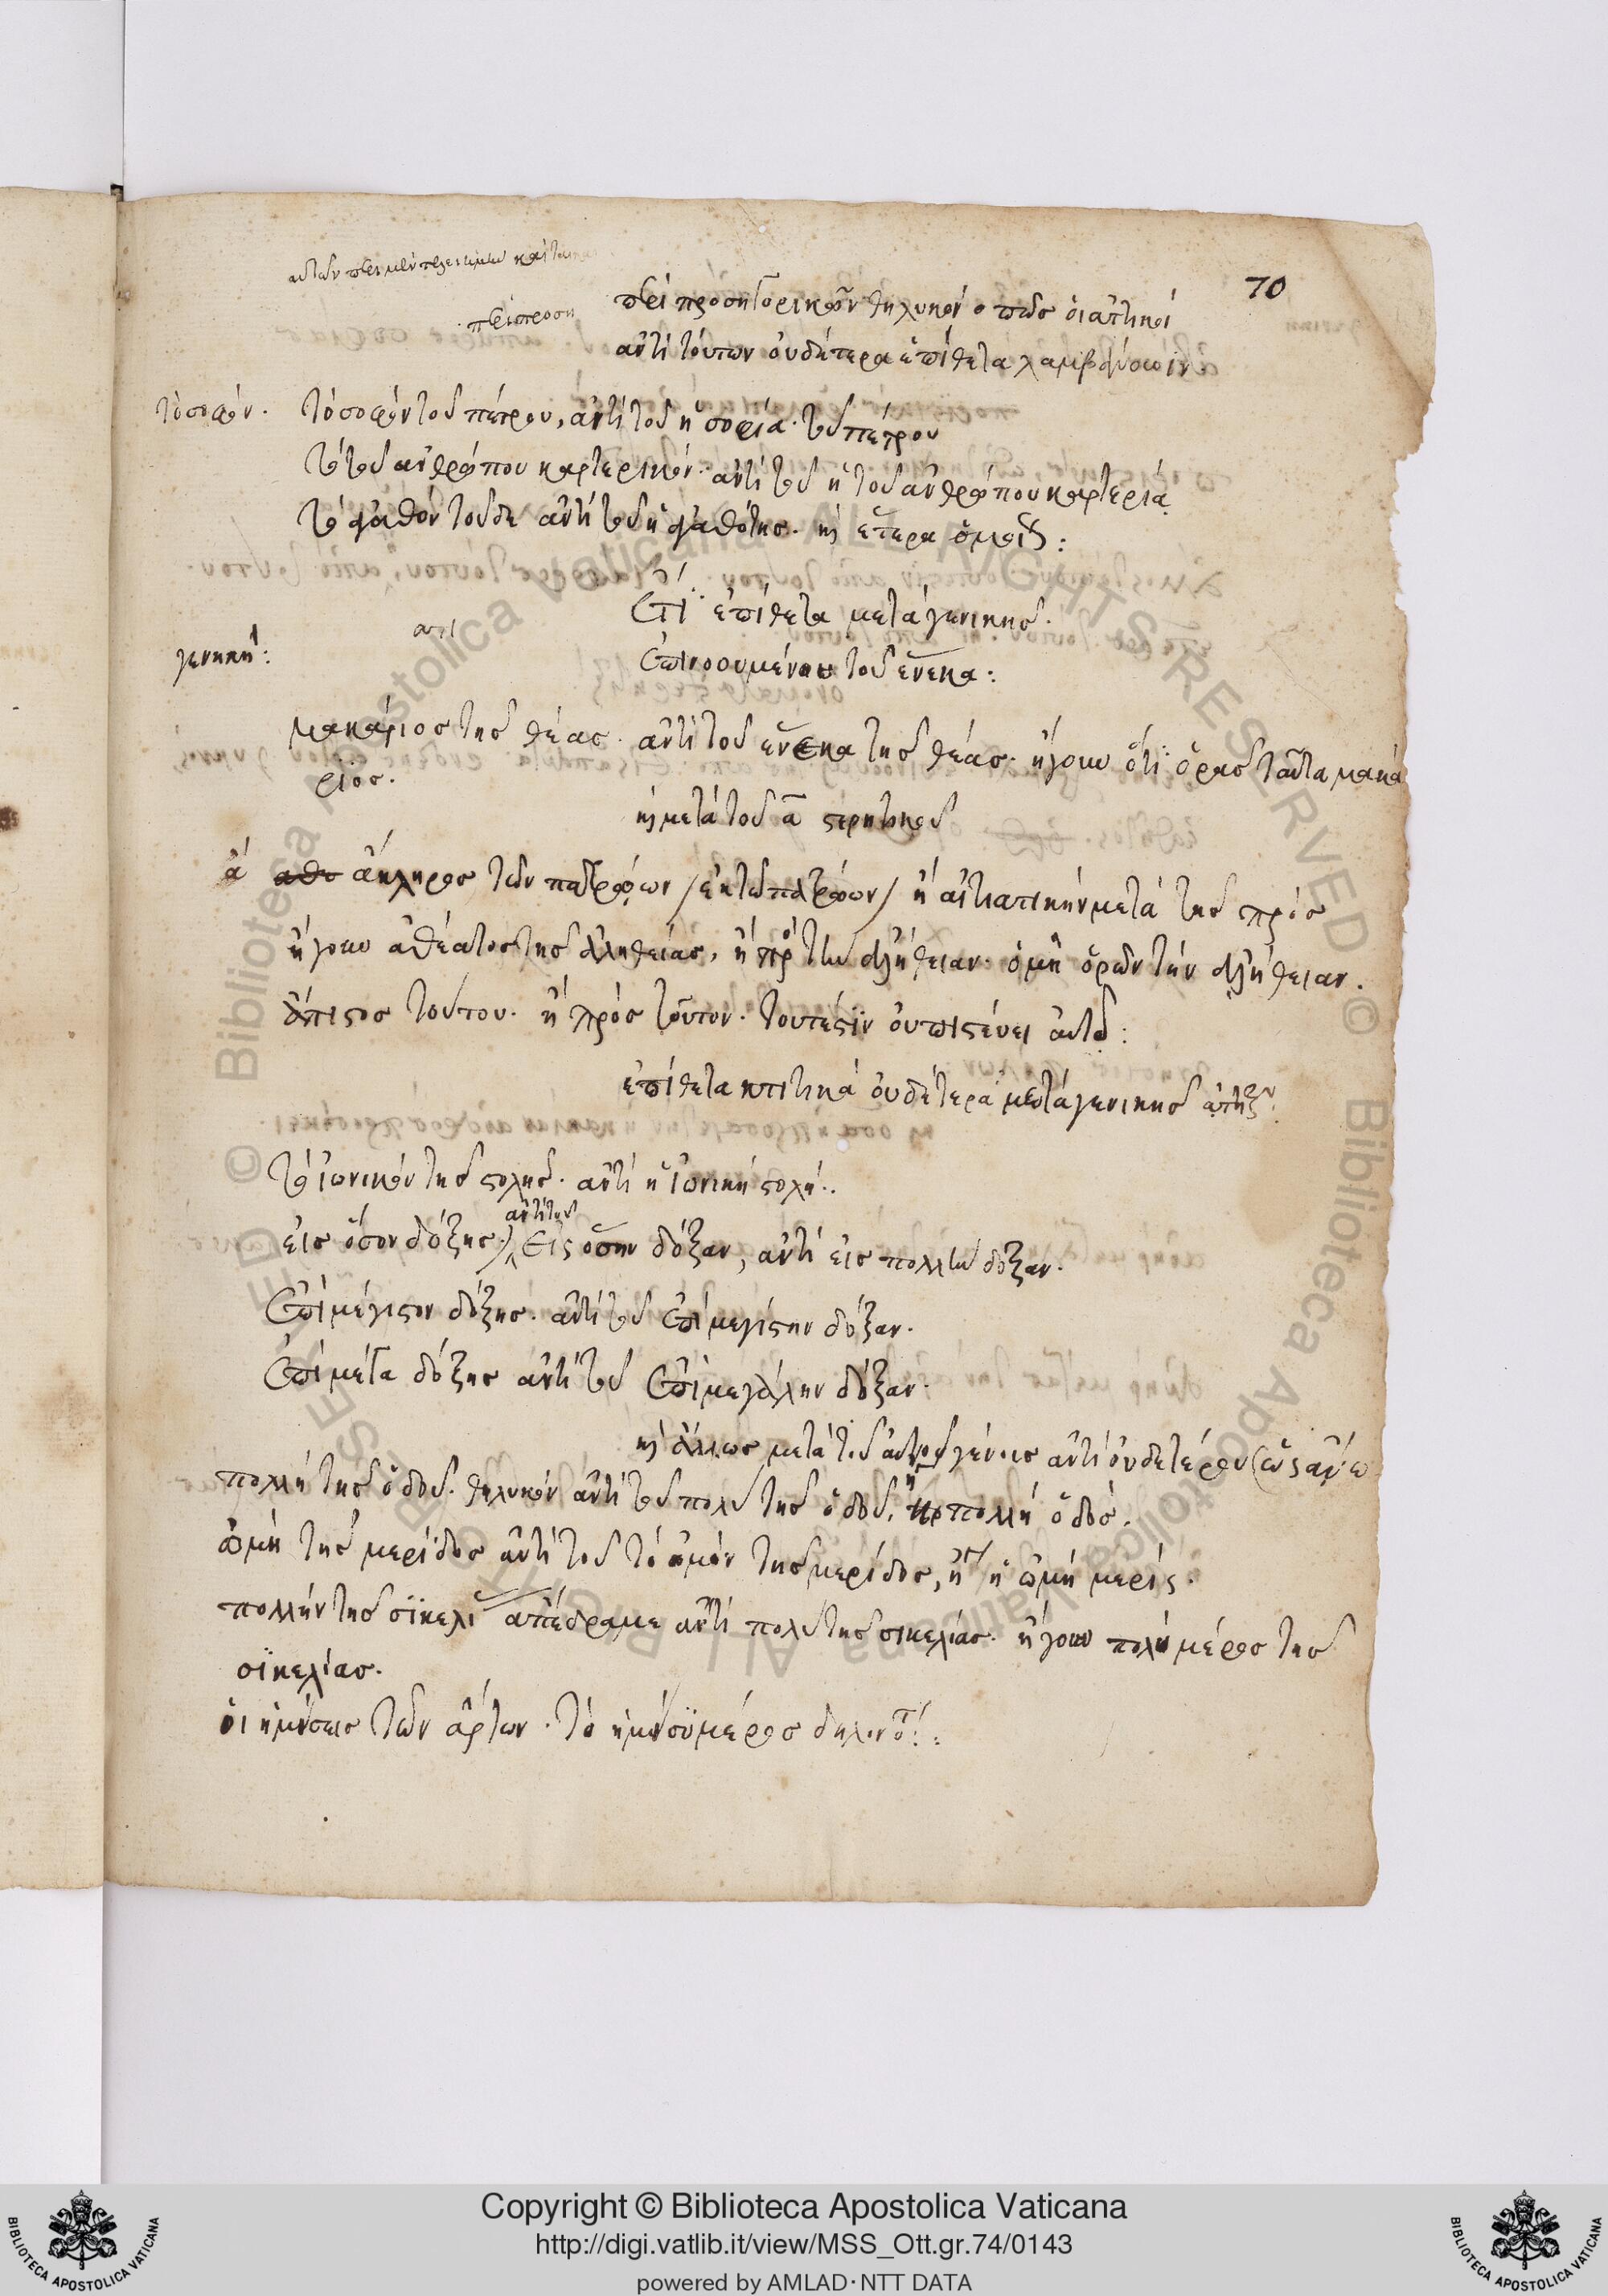 70
περὶ προσηγορικῶν θηλυκῶν ὅπως οἱ ἀττικοὶ
περὶ προση
ἀντὶ τούτων οὐδέτερα ἐπίθετα λαμβάνουσιν
τὸ σοφόν. τὸ σοφὸν τοῦ πέτρου, ἀντὶ τοῦ ἡ σοφία τοῦ πέτρου
τὸ τοῦ ἀνθρώπου καρτερικόν. ἀντὶ τοῦ ἡ τοῦ ἀνθρώπου καρτερία
τὸ ἀγαθὸν τοῦδε ἀντὶ τοῦ ἡ ἀγαθότης. καὶ ἕτερα ὅμοια:
ἔτι ἐπίθετα μετὰ γενικῆς.
γενική:
ἐπινοουμένου τοῦ ἕνεκα:
μακάριος τῆς θέας. ἀντὶ τοῦ ἕνεκα τῆς θέας. ἤγουν ὅτι ὁρᾷς ταῦτα μακά
ριος.
καὶ μετὰ τοῦ α στερητικοῦ
ἄκληρος τῶν πατρῴων / ἐκ τῶν πατρῴων / ἢ αἰτιατικὴν μετὰ τῆς πρός
ἤγουν ἀθέατος τῆς ἀληθείας, ἢ πρὸς τὴν ἀλήθειαν. ὁ μὴ ὁρῶν τὴν ἀλήθειαν.
ἄπιστος τούτου. ἢ πρὸς τοῦτον. τουτέστιν οὐ πιστεύει αὐτῷ:
ἐπίθετα οὐδέτερα μετὰ γενικῆς
τὸ ἰωνικὸν τῆς στολῆς. ἀντὶ ἡ ἰωνικὴ στολή.
ἀντὶ τοῦ
εἰς ὅσον δόξης. εἰς ὅσην δόξαν, ἀντὶ εἰς πολλὴν δόξαν.
ἐπὶ μέγιστον δόξης. ἀντὶ τοῦ ἐπὶ μεγίστην δόξαν.
ἐπὶ μέγα δόξης ἀντὶ τοῦ ἐπὶ μεγάλην δόξαν.
καὶ ἄλλως μετὰ τοῦ αὐτοῦ γένους ἀντὶ οὐδετέρου
πολλὴ τῆς ὁδοῦ. θηλυκὸν ἀντὶ τοῦ πολὺ τῆς ὁδοῦ. πολλὴ ὁδός.
ὠμὴ τῆς μερίδος ἀντὶ τοῦ τὸ ὠμὸν τῆς μερίδος, ἢ ἡ ὠμὴ μερίς.
πολλὴν τῆς σικελί ἀπέδραμε ἀντὶ πολὺ τῆς σικελίας. ἤγουν πολὺ μέρος τῆς
σικελίας.
οἱ ἡμίσεις τῶν ἄρτων. τὸ ἥμισυ μέρος δηλονότι:
Copyright © Biblioteca Apostolica Vaticana
http://digi.vatlib.it/view/MSS_Ott.gr.74/0143
powered by AMLAD·NTT DATA
BIBLIOTECA APOSTOLICA VATICANA
BIBLIOTECA APOSTOLICA VATICANA